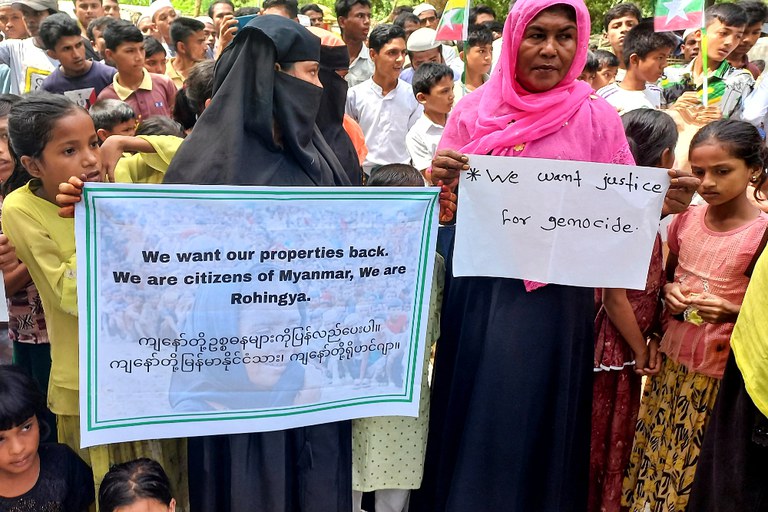 We want our properties back.
We are citizens of Myanmar, We are
Rohingya.
ကျနော်တို့ဥစ္စဓနများကိုပြန်လည်ပေးပါ။
ကျနော်တို့မြန်မာနိုင်ငံသား၊ ကျနော်တို့ရိုဟင်ဂျာ။
*We want justice
for gemocide.